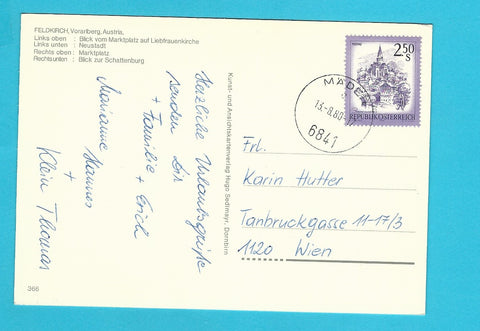 FELDKIRCH, Vorarlberg, Austria,
Links oben : Blick vom Marktplatz auf Liebfrauenkirche
Links unten : Neustadt
Rechts oben : Marktplatz
Rechtsunten : Blick zur Schattenburg
Herzliche Urlaubsgrüße
senden Dir
Familie + Erich
+
Marianne
Hannes
+
Klein Thomas
366
Kunst- und Ansichtskartenverlag Hugo Sedlmayr, Dornbirn
2.50
S
REPUBLIK ÖSTERREICH
MÄDER
13.-8.80
6841
Frl.
Karin Hutter
Tanbruckgasse 11-17/3
1120 Wien